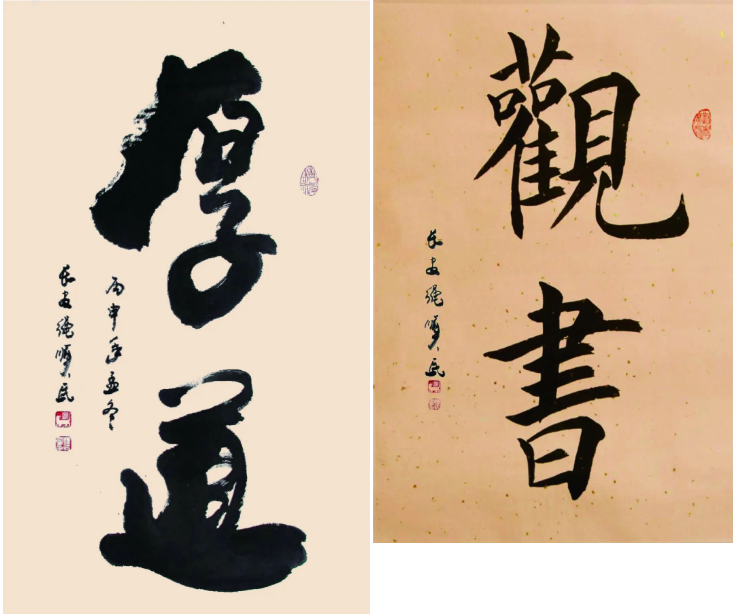 厚道
丙申年孟冬
长安绳顺民
觀書
长安绳顺民